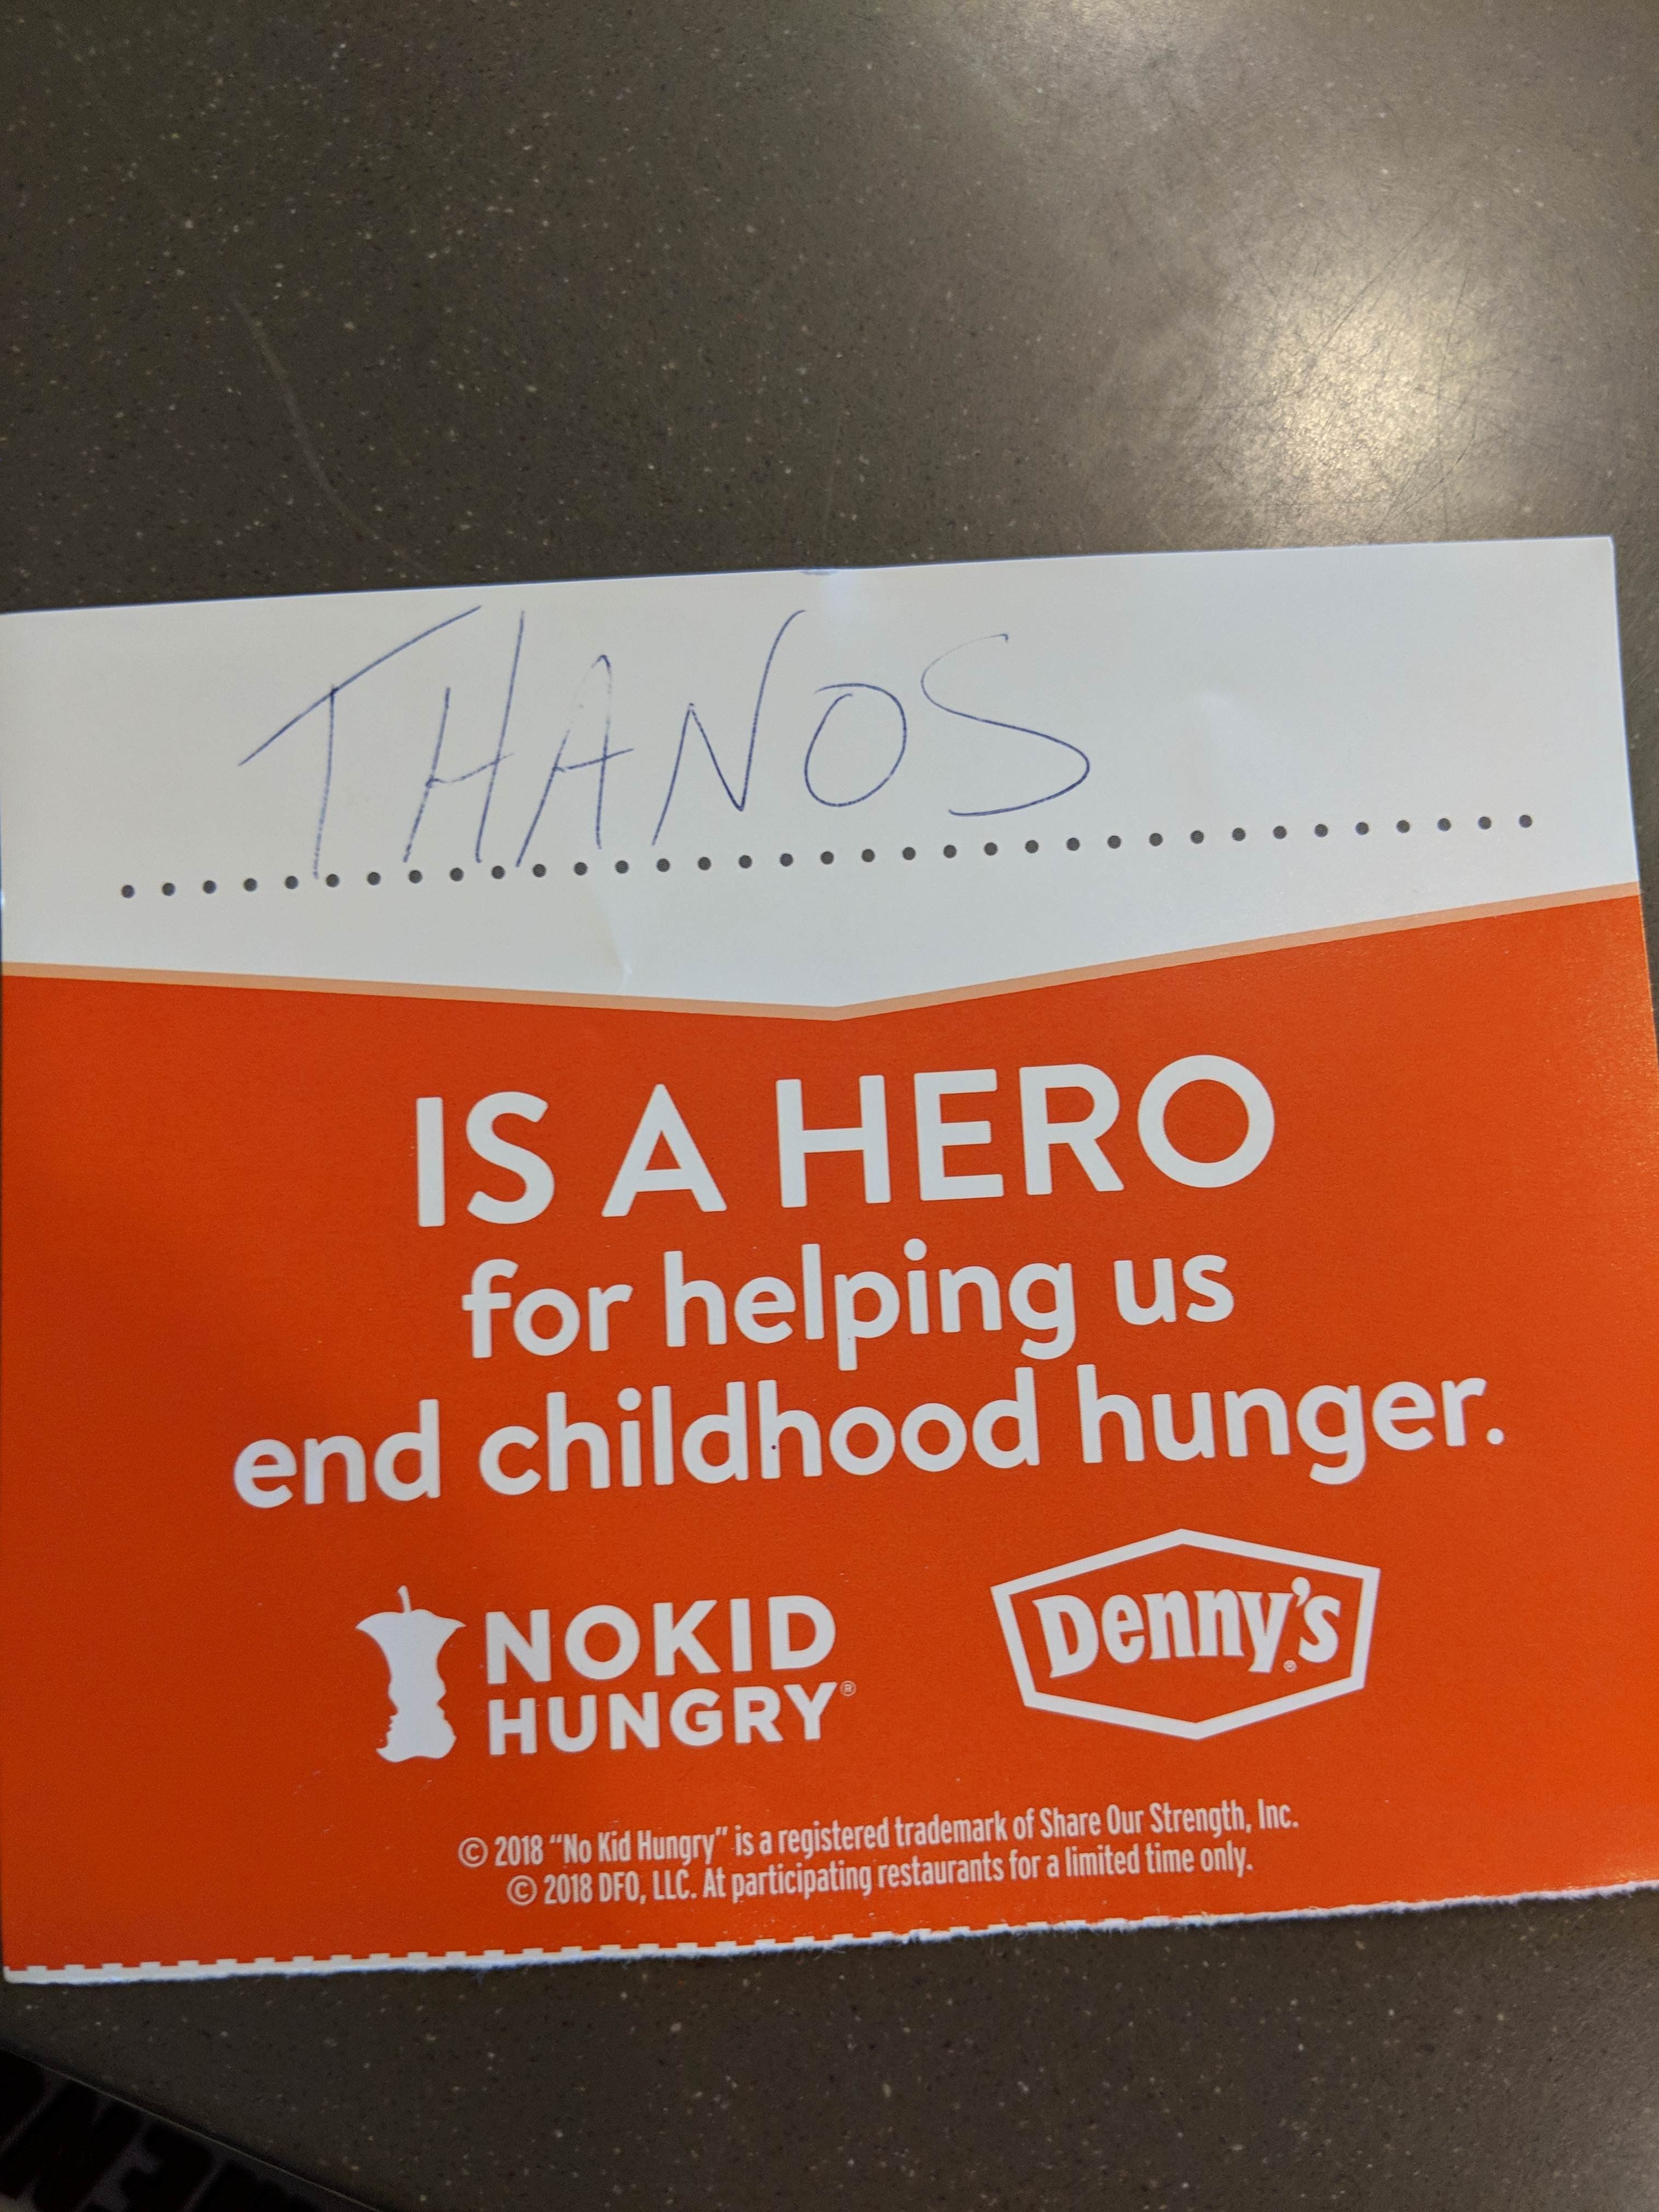 THANOS
IS A HERO
for helping us
end childhood hunger.
NO KID
HUNGRY®
Denny's®
© 2018 “No Kid Hungry” is a registered trademark of Share Our Strength, Inc.
© 2018 DFO, LLC. At participating restaurants for a limited time only.